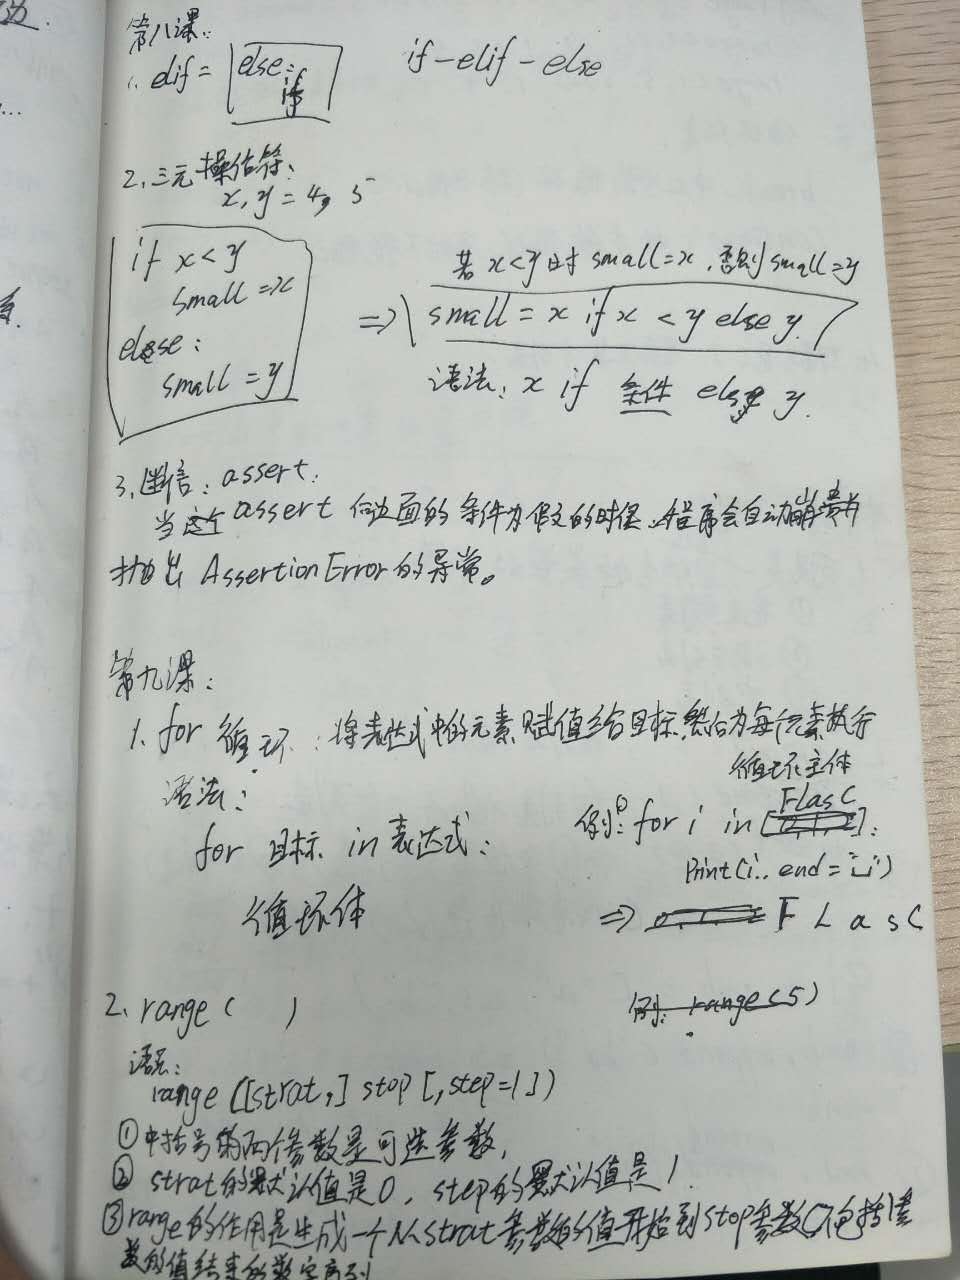 第八课:
1. elif = else: if
if-elif-else
2. 三元操作符:
x, y = 4, 5
if x < y
small = x
else:
small = y
若 x<y 时 small=x, 否则 small=y
=> small = x if x < y else y
语法: x if 条件 else y.
3. 断言: assert.
当这个 assert 后边面的条件为假的时候, 程序会自动崩溃并
抛出 AssertionError 的异常。
第九课:
1. for 循环: 将表达式中的元素赋值给目标,然后为每个元素执行
循环主体
语法:
for 目标 in 表达式:
循环体
例①: for i in [FLasC]:
Print(i, end='')
=> F L a s C
2. range( )
例: range(5)
语法:
range([strat,] stop [,step=1])
①中括号的两个参数是可选参数,
② strat的默认值是0, step的默认值是1.
③range的作用是生成一个从strat参数的值开始到stop参数(不包括
数的值结束的数字序列